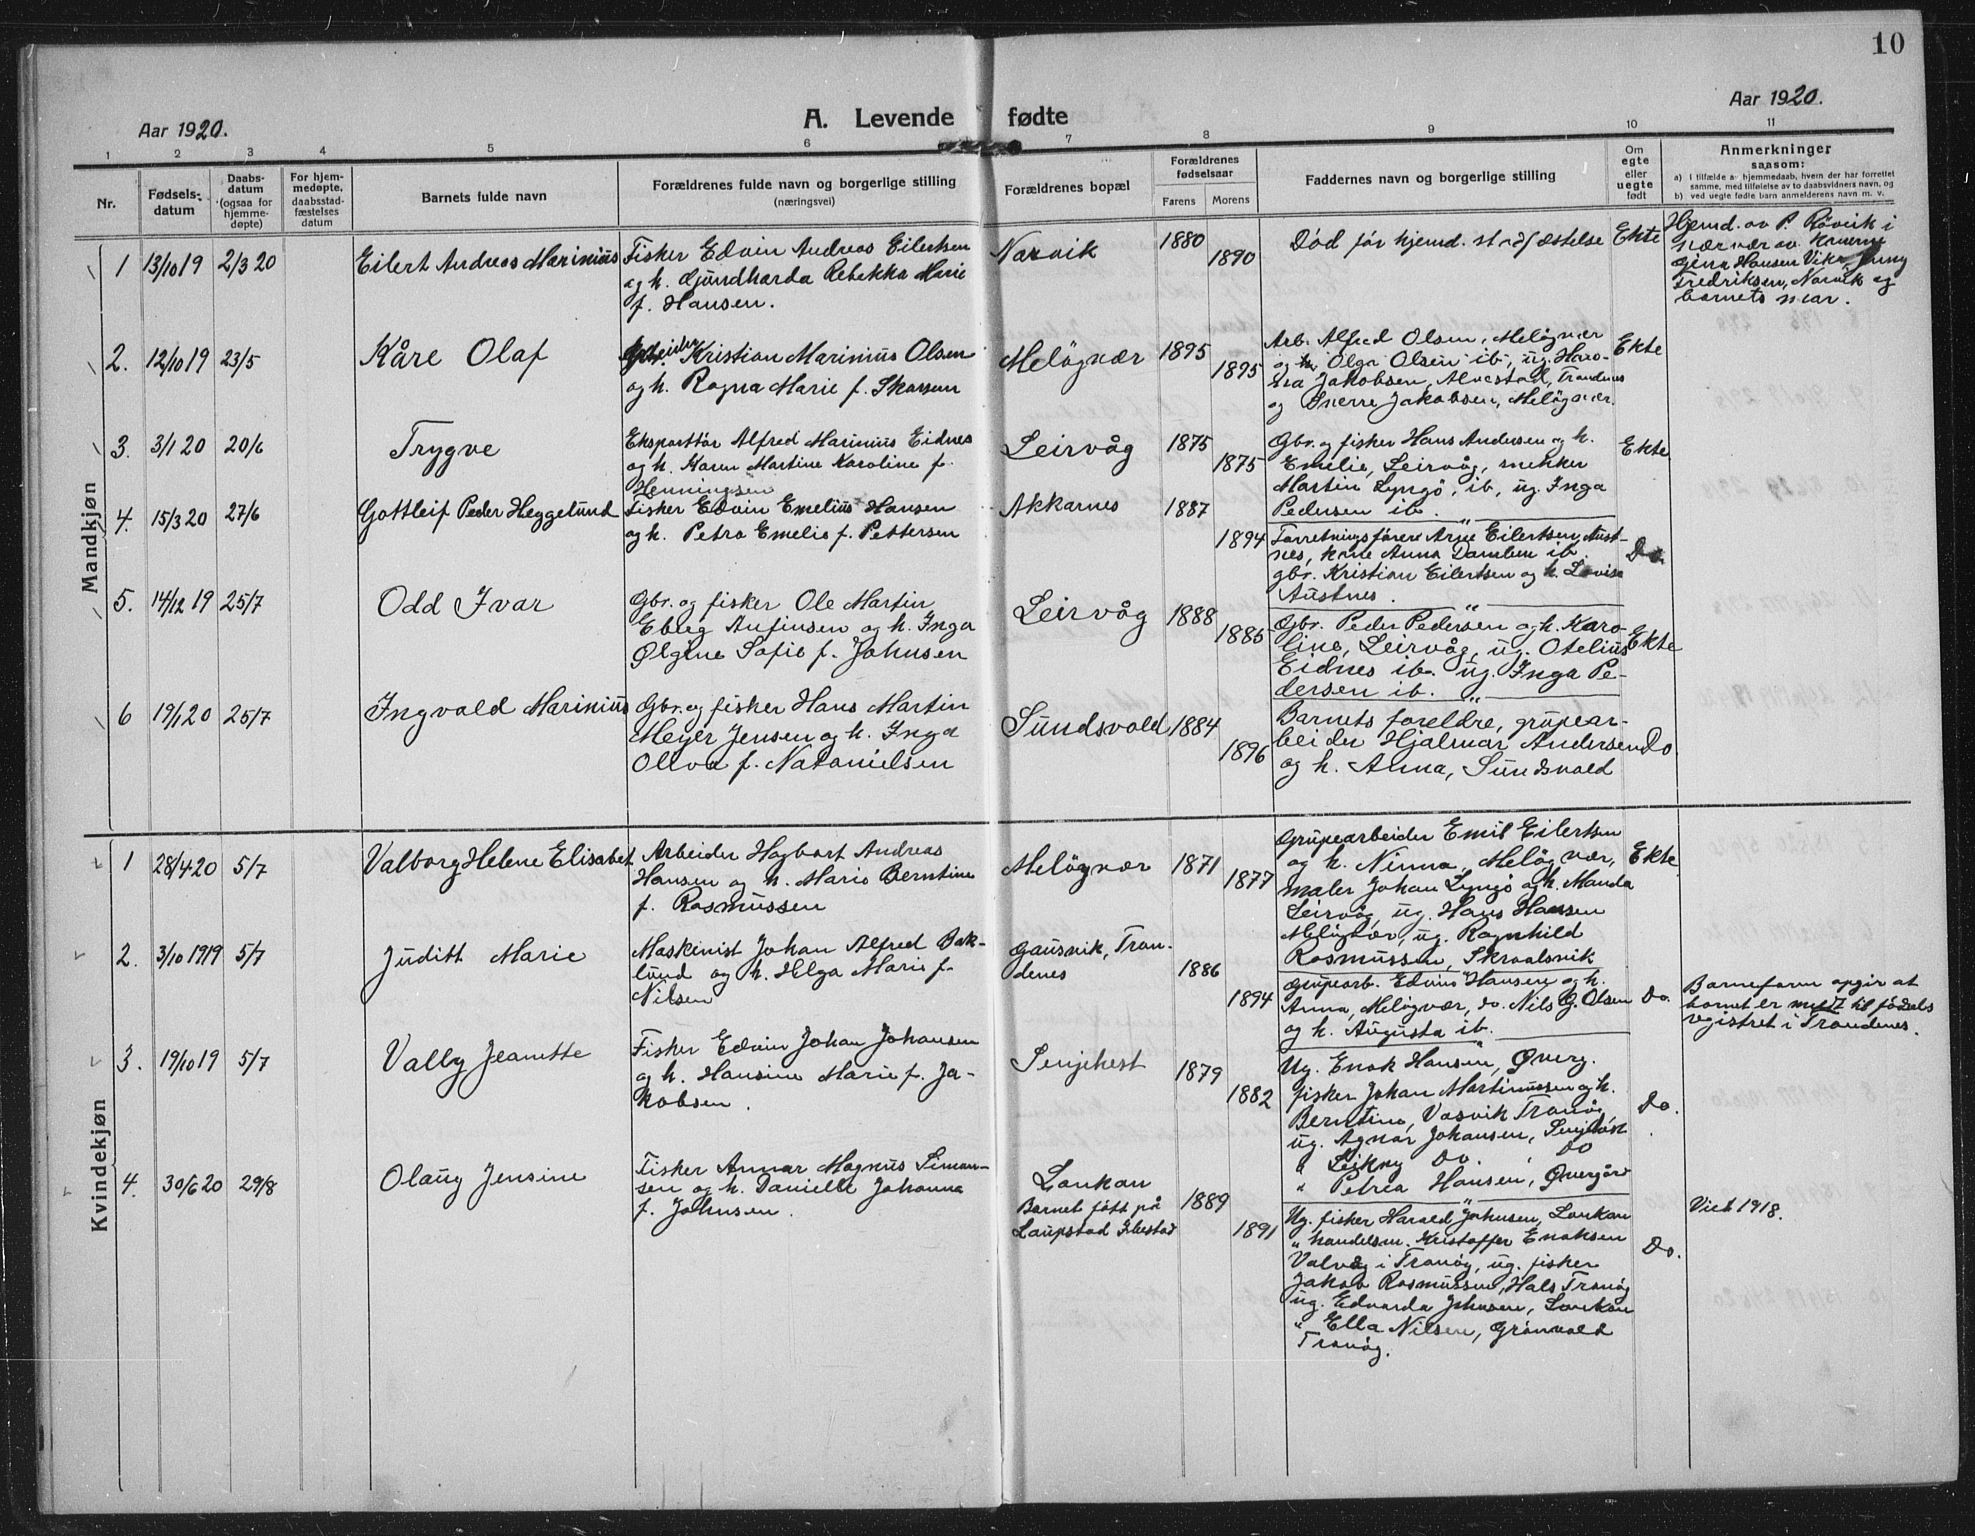 10
Aar 1920.
A. Levende fødte
Aar 1920.
1 2 3 4 5 6 7 8 9 10 11
Nr.
Fødsels-
datum
Daabs-
datum
(ogsaa for
hjemme-
døpte)
For hjem-
medøpte,
daabsstad-
fæstelses
datum
Barnets fulde navn
Forældrenes fulde navn og borgerlige stilling
(næringsvei)
Forældrenes bopæl
Forældrenes
fødselsaar
Farens Morens
Faddernes navn og borgerlige stilling
Om
egte
eller
uegte
født
Anmerkninger
saasom:
a) I tilfælde av hjemmedaab, hvem der har forrettet
samme, med tilføielse av to daabsvidners navn, og
b) ved uegte fødte barn anmelderens navn m. v.
Mandkjøn
1 13/10 19 2/3 20
Eilert Andreas Marinius
Fisker Edvin Andreas Eilertsen
og h. Gjundharda Rebekka Marie
f. Hansen.
Narvik
1880
1890
Død før hjemd. stadfæstelse
Ekte
Hjemd. av P. Røvik i
nærvær av konerne
Gina Hansen Vik, Jenny
Fredriksen, Narvik og
barnets mar.
2. 12/10 19 23/5
Kåre Olaf
Arbeider Kristian Marinius Olsen
og h. Ragna Marie f. Skarsen
Meløyvær
1895
1895
Arb. Alfred Olsen, Meløyvær
og h. Olga Olsen ib, ug. Haro-
Jakobsen, Alvestad, Trondenes
og Snerre Jakobsen, Meløyvær.
Ekte
3. 3/1 20 20/6
Trygve
Eksportør Alfred Marinius Eidnes
og h. Karen Martine Karoline f.
Henningsen
Leirvåg
1875
1875
Gbr. og fisker Hans Andersen og h.
Emelie, Leirvåg, snekker
Martin Lyngø, ib, ug. Inga
Pedersen ib.
Ekte
4. 15/3 20 27/6
Gottleif Peder Heggelund
Fisker Edvin Emelius Hansen
og h. Petra Emelie f. Pettersen
Akkarnes
1887
1894
Forretningsfører Arne Eilertsen, Aust-
nes, kone Anna Danlsen ib.
gbr. Kristian Eilertsen og h. Lovise
Austnes.
Do.
5. 14/12 19 25/7
Odd Ivar
Gbr. og fisker Ole Martin
Eberg Anfinsen og h. Inga
Olgine Sofie f. Johnsen
Leirvåg
1888
1885
Gbr. Peder Pedersen og h. Karo-
line, Leirvåg, ug. Otelius
Eidnes ib. ug. Inga Pe-
dersen ib.
Ekte
6 19/1 20 25/7
Ingvald Marinius
Gbr. og fisker Hans Martin
Meyer Jensen og h. Inga
Oliva f. Natanielsen
Sundsvold
1884
1896
Barnets foreldre, grupear-
beider Hjalmar Andersen
og h. Anna, Sundsvold
Do
Kvindekjøn
1 28/4 20 5/7
Valborg Helene Elisabet
Arbeider Hagbart Andreas
Hansen og h. Marie Berntine
f. Rasmussen
Meløyvær
1871
1877
Grupearbeider Emil Eilertsen
og h. Ninna, Meløyvær,
maler Johan Lyngø og h. Manda
Leirvåg, ug. Hans Hansen
Meløyvær, ug. Ragnhild
Rasmussen, Skroalsvik
Ekte
2. 3/10 1919 5/7
Juditt Marie
Maskinist Johan Alfred Bak-
lund og h. Helga Marie f.
Nilsen
Gausvik, Tron-
denes
1886
1894
Grupearb. Edvin Hansen og h.
Anna, Meløyvær, do. Nils G. Olsen
og h. Augusta ib.
Do.
Barnefaren opgir at
barnet er meldt til fødsels
registret i Trondenes.
3. 19/10 19 5/7
Valby Jeanette
Fisker Edvin Johan Johansen
og h. Hansine Marie f. Ja-
kobsen.
Senjehest
1879
1882
Ug. Enok Hansen, Øverg.
fisker Johan Martinussen og h.
Berntine, Vasvik Tranøy,
ug. Agnar Johansen, Senjehest
" Leikny Do. , Do
" Petrea Hansen, Øvergård
Do.
4. 30/6 20 29/8
Olaug Jensine
Fisker Annar Magnus Siman-
sen og h. Danielle Johanna
f. Johnsen.
Lankan
Barnet født på
Laupstad Ibestad
1889
1891
Ug. fisker Harald Johnsen, Lankan
" handelsm. Kristoffer Enoksen
Valvåg i Tranøy, ug. fisker
Jakob Rasmussen, Hals Tranøy
ug. Edvarda Johnsen, Lankan
" Ella Nilsen, Grønvold
Tranøy.
Do.
Viet 1918.